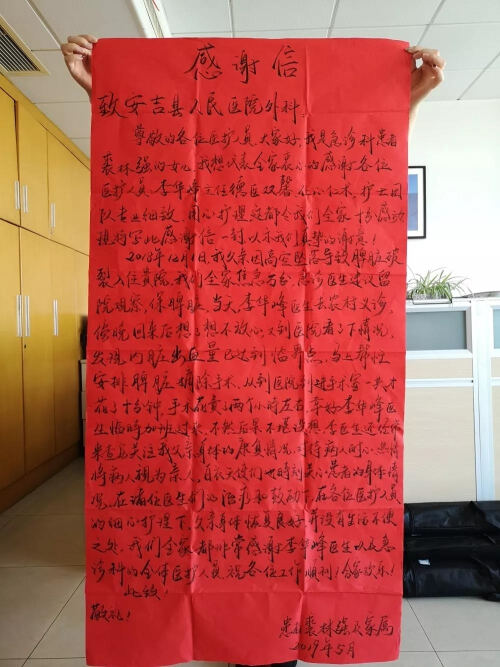 感谢信
致安吉县人民医院外科：
尊敬的各位医护人员，大家好，我是急诊科患者
裘林强的女儿，我想代表全家衷心的感谢各位
医护人员，李华峰主任德医双馨，仁心仁术，护士团
队专业细致，用心护理，这都令我们全家十分感动
提笔写此感谢信一封，以示我们真挚的谢意！
2018年12月1日我父亲因高空坠落导致脾脏破
裂入住贵院，我们全家焦急万分，急诊医生建议留
院观察，保脾脏，当天，李华峰医生去农村义诊，
傍晚回来后想了想不放心，又到医院看了下情况，
发现，内脏出血量已达到临界点，马上帮忙
安排脾脏摘除手术，从到医院到进手术室一共才
花了十分钟，手术花费了两个小时左右，幸好李华峰医
生临时加班过来，不然后果不堪设想，李医生还经常
来查看关注我父亲身体的康复情况，对待病人耐心，热情
将病人视为亲人，白衣天使们也时刻关心患者的身体情
况，在诸位医生们的治疗和鼓励下，在各位医护人员
的细心护理下，父亲身体恢复良好，并没有生活不便
之处，我们全家都非常感谢李华峰医生以及急
诊科的全体医护人员，祝各位工作顺利！合家欢乐！
此致！
敬礼！
患者裘林强及家属
2019年5月